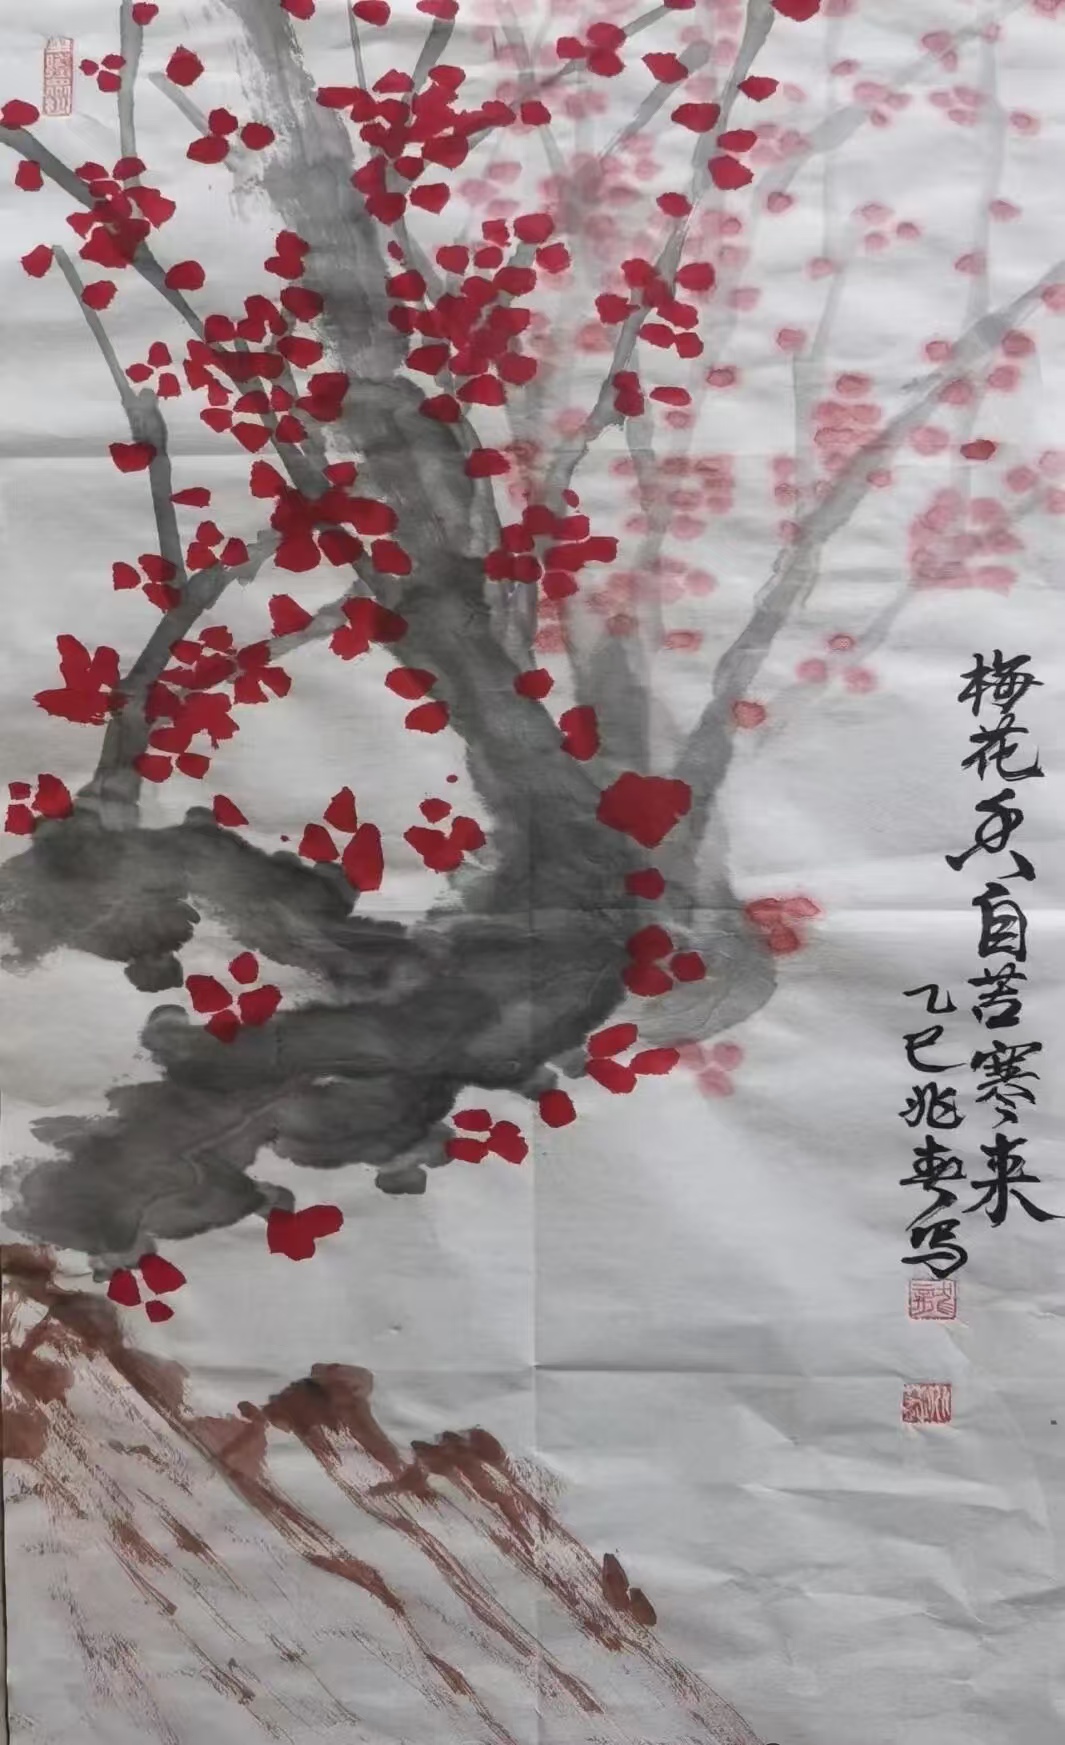 梅花香自苦寒来
乙巳兆春写